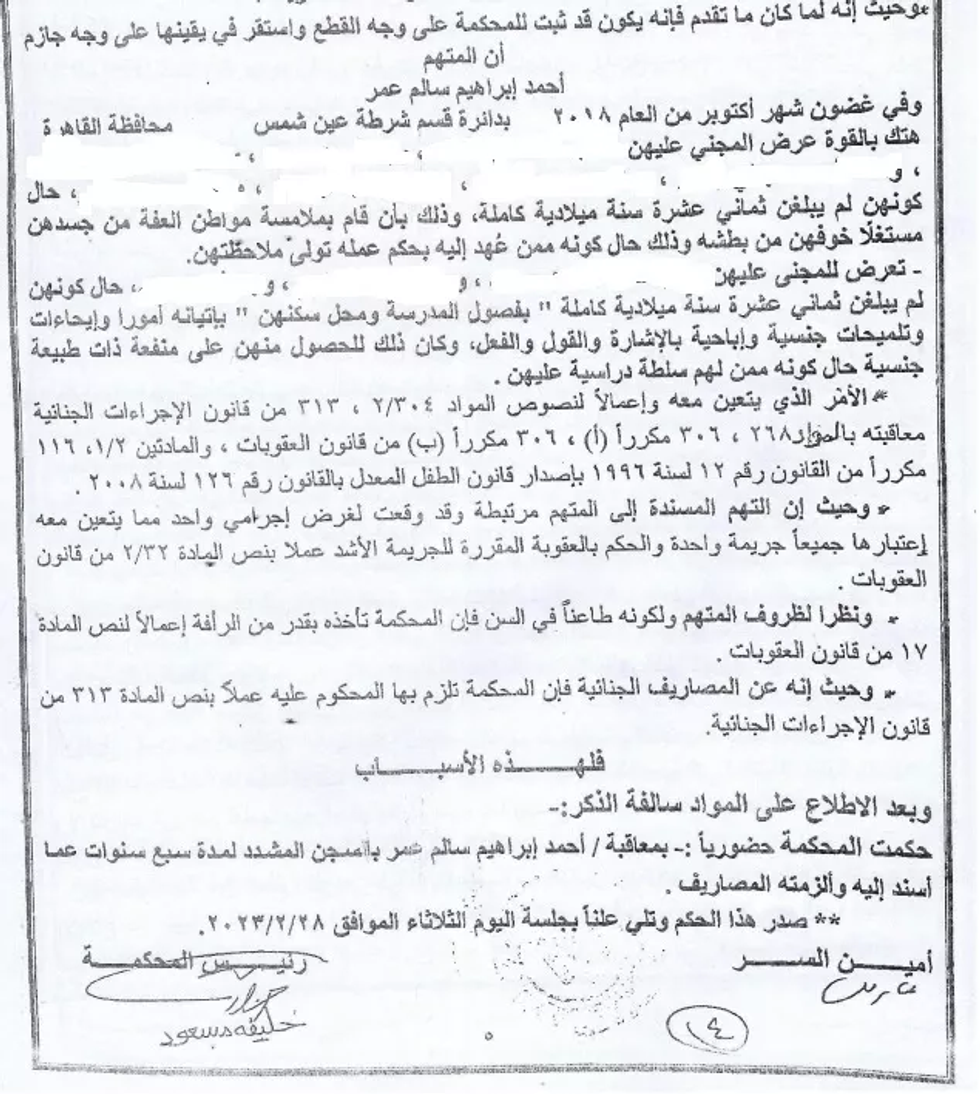 *وحيث إنه لما كان ما تقدم فانه يكون قد ثبت للمحكمة على وجه القطع واستقر في يقينها على وجه جازم
أن المتهم
أحمد إبراهيم سالم عمر
وفي غضون شهر أكتوبر من العام ٢٠١٨ بدائرة قسم شرطة عين شمس محافظة القاهرة
هتك بالقوة عرض المجني عليهن ،
، و ، ، ، حال
كونهن لم يبلغن ثماني عشرة سنة ميلادية كاملة، وذلك بأن قام بملامسة مواطن العفة من جسدهن
مستغلًا خوفهن من بطشه وذلك حال كونه ممن عُهد إليه بحكم عمله تولى ملاحظتهن.
- تعرض للمجنى عليهن ، و ، و ، حال كونهن
لم يبلغن ثماني عشرة سنة ميلادية كاملة " بفصول المدرسة ومحل سكنهن " بإتيانه أمورا وإيحاءات
وتلميحات جنسية وإباحية بالإشارة والقول والفعل، وكان ذلك للحصول منهن على منفعة ذات طبيعة
جنسية حال كونه ممن لهم سلطة دراسية عليهن .
* الأمر الذي يتعين معه وإعمالاً لنصوص المواد ٢/٣٠٤ ، ٣١٣ من قانون الإجراءات الجنائية
معاقبته بالمواد ٢٦٨ ، ٣٠٦ مكرراً (أ) ، ٣٠٦ مكرراً (ب) من قانون العقوبات ، والمادتين ١/٢، ١١٦
مكرراً من القانون رقم ١٢ لسنة ١٩٩٦ بإصدار قانون الطفل المعدل بالقانون رقم ١٢٦ لسنة ٢٠٠٨ .
* وحيث إن التهم المسندة إلى المتهم مرتبطة وقد وقعت لغرض إجرامي واحد مما يتعين معه
إعتبارها جميعاً جريمة واحدة والحكم بالعقوبة المقررة للجريمة الأشد عملا بنص المادة ٢/٣٢ من قانون
العقوبات .
* ونظرا لظروف المتهم ولكونه طاعناً في السن فإن المحكمة تأخذه بقدر من الرأفة إعمالاً لنص المادة
١٧ من قانون العقوبات
* وحيث إنه عن المصاريف الجنائية فإن المحكمة تلزم بها المحكوم عليه عملاً بنص المادة ٣١٣ من
قانون الإجراءات الجنائية.
فلهـــــذه الأسبـــــاب
وبعد الاطلاع على المواد سالفة الذكر:-
حكمت المحكمة حضورياً :- بمعاقبة / أحمد إبراهيم سالم عمر بالسجن المشدد لمدة سبع سنوات عما
أسند إليه والزمته المصاريف .
** صدر هذا الحكم وتلي علناً بجلسة اليوم الثلاثاء الموافق ٢٠٢٣/٢/٢٨.
أميـــن الســـر رئيـــس المحكمـــة
خليفه مسعود
٥ ١٤